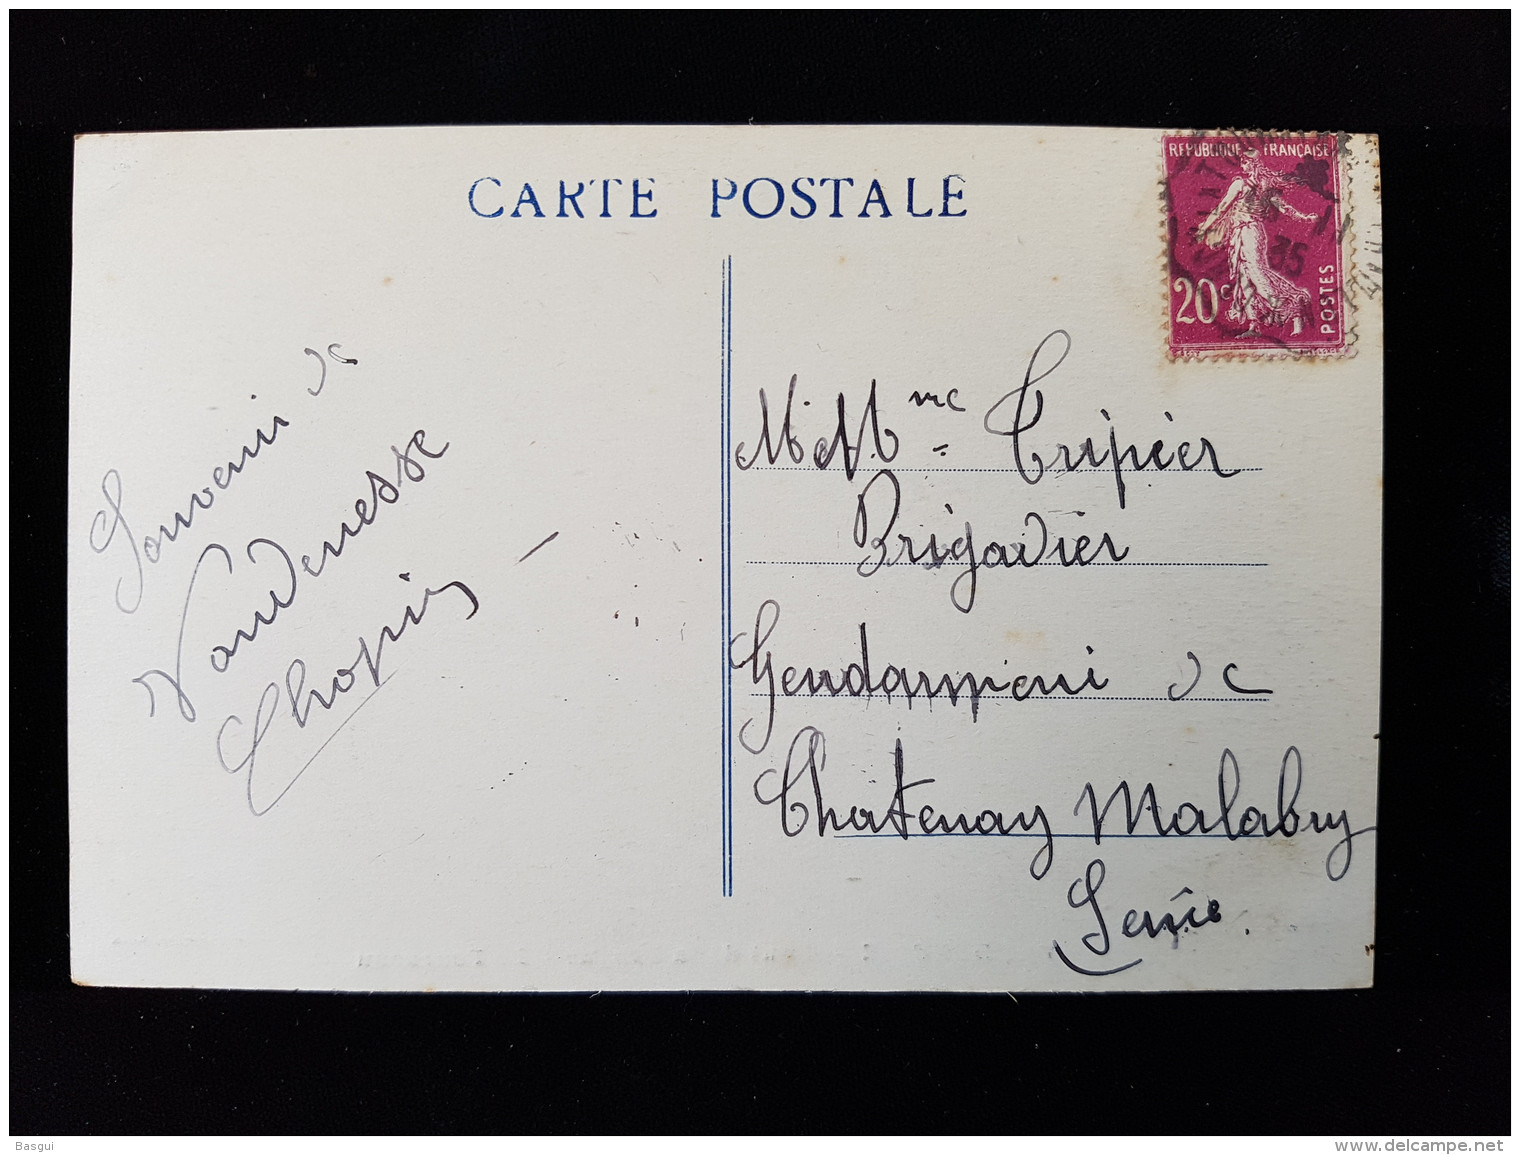 CARTE POSTALE
REPUBLIQUE FRANÇAISE
20c
POSTES
35
Souvenir de
Vaudenesse
Chopin
M. et Mme Tripier
Brigadier
Gendarmerie de
Chatenay Malabry
Seine.
Basgui
www.delcampe.net